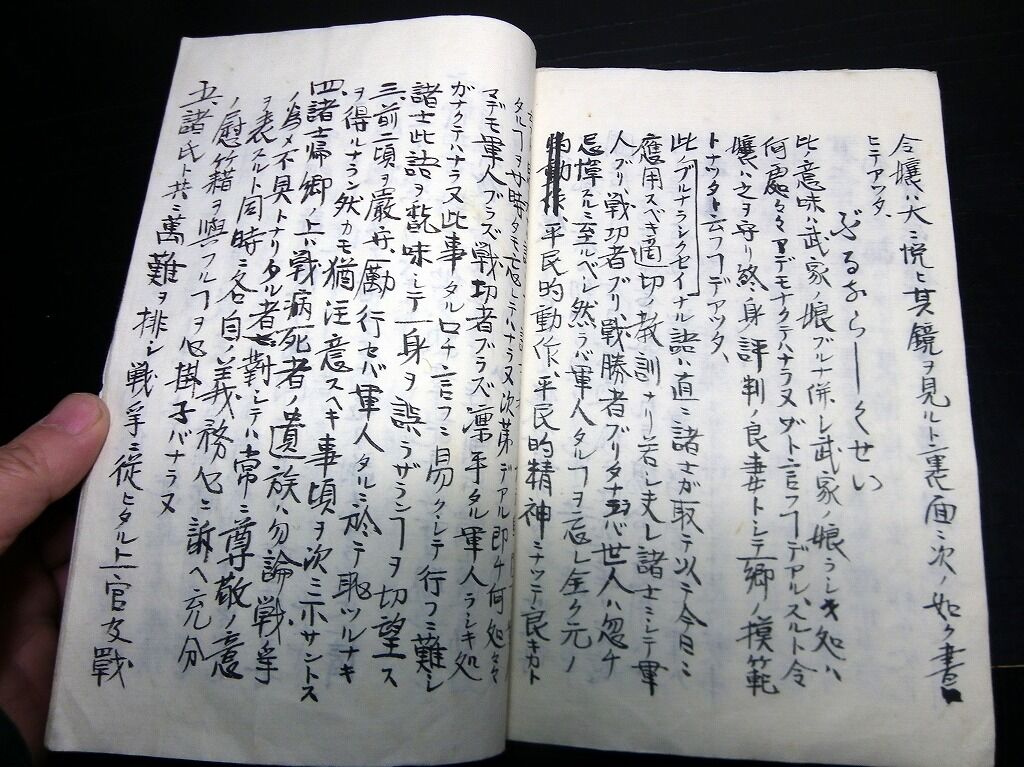 令孃ハ大ニ悦ヒ其鏡ヲ見ルト裏面ニ次ノ如ク書
ヒテアツタ、
ぶるならーしくせい
此ノ意味ハ武家ノ娘ブルナ併シ武家ノ娘ラシキ処ハ
何處々々マデモナクテハナラヌゾト言フヿデアル、スルト令
孃ハ之ヲ守リ終身評判ノ良妻トシテ一郷ノ模範
トナツタト云フヿデアツタ、
此ノブルナランクセイナル語ハ直ニ諸士ガ取テ以テ今日ニ
應用スベキ適切ノ教訓ナリ若シ夫レ諸士ニシテ軍
人ブリ戦功者ブリ、戦勝者ブリタナラバ世人ハ忽チ
忌憚スルニ至ルベシ然ラバ軍人タルヿヲ忘レ全ク元ノ
動作、平民的動作、平民的精神ニナツテ良キカト
タルヿヲ片時タモ忘レテハナラヌ次第デアル即チ何処々々
マデモ軍人ブラズ戦功者ブラズ凛乎タル軍人ラシキ処
ガナクテハナラヌ此事タル口チ言フニ易クシテ行フニ難シ
諸士此語ヲ翫味シテ一身ヲ誤ラザランヿヲ切望ス
三、前二項ヲ嚴守シ勵行セバ軍人タルニ於テ恥ツルナキ
ヲ得ルナラン然カモ猶注意スヘキ事項ヲ次ニ示サントス
四、諸士帰郷ノ上ハ戦病死者ノ遺族ハ勿論戦爭
ノ為メ不具トナリタル者ニ對シテハ常ニ尊敬ノ意
ヲ表スルト同時ニ各自ノ義務心ニ訴ヘ充分
ノ慰籍ヲ與フルヿヲ心掛子バナラヌ
五、諸氏ト共ニ萬難ヲ排シ戦爭ニ從ヒタル上官友戰